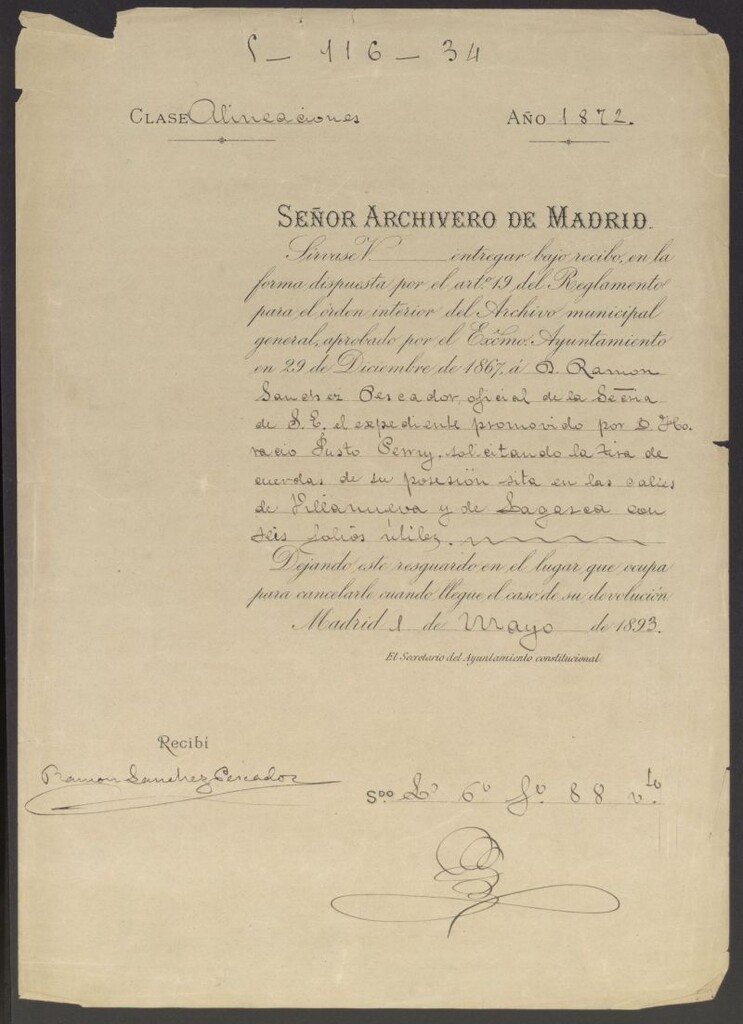 5 – 116 – 34
CLASE Alineaciones
AÑO 1872.
SEÑOR ARCHIVERO DE MADRID.
Sírvase V. entregar bajo recibo, en la
forma dispuesta por el artº 19 del Reglamento
para el órden interior del Archivo municipal
general, aprobado por el Excmo. Ayuntamiento
en 29 de Diciembre de 1867, á D. Ramon
Sanchez Pescador, oficial de la Sñria
de S. E. el expediente promovido por D. Ho-
racio Justo Perry, solicitando la tira de
cuerdas de su posesión sita en las calles
de Villanueva y de Lagasca con
seis folios útiles.
Dejando este resguardo en el lugar que ocupa
para cancelarle cuando llegue el caso de su devolución.
Madrid 1 de Mayo de 1893.
El Secretario del Ayuntamiento constitucional.
Recibí
Ramon Sanchez Pescador
Sdo Lº 6º Fº 88 vto.